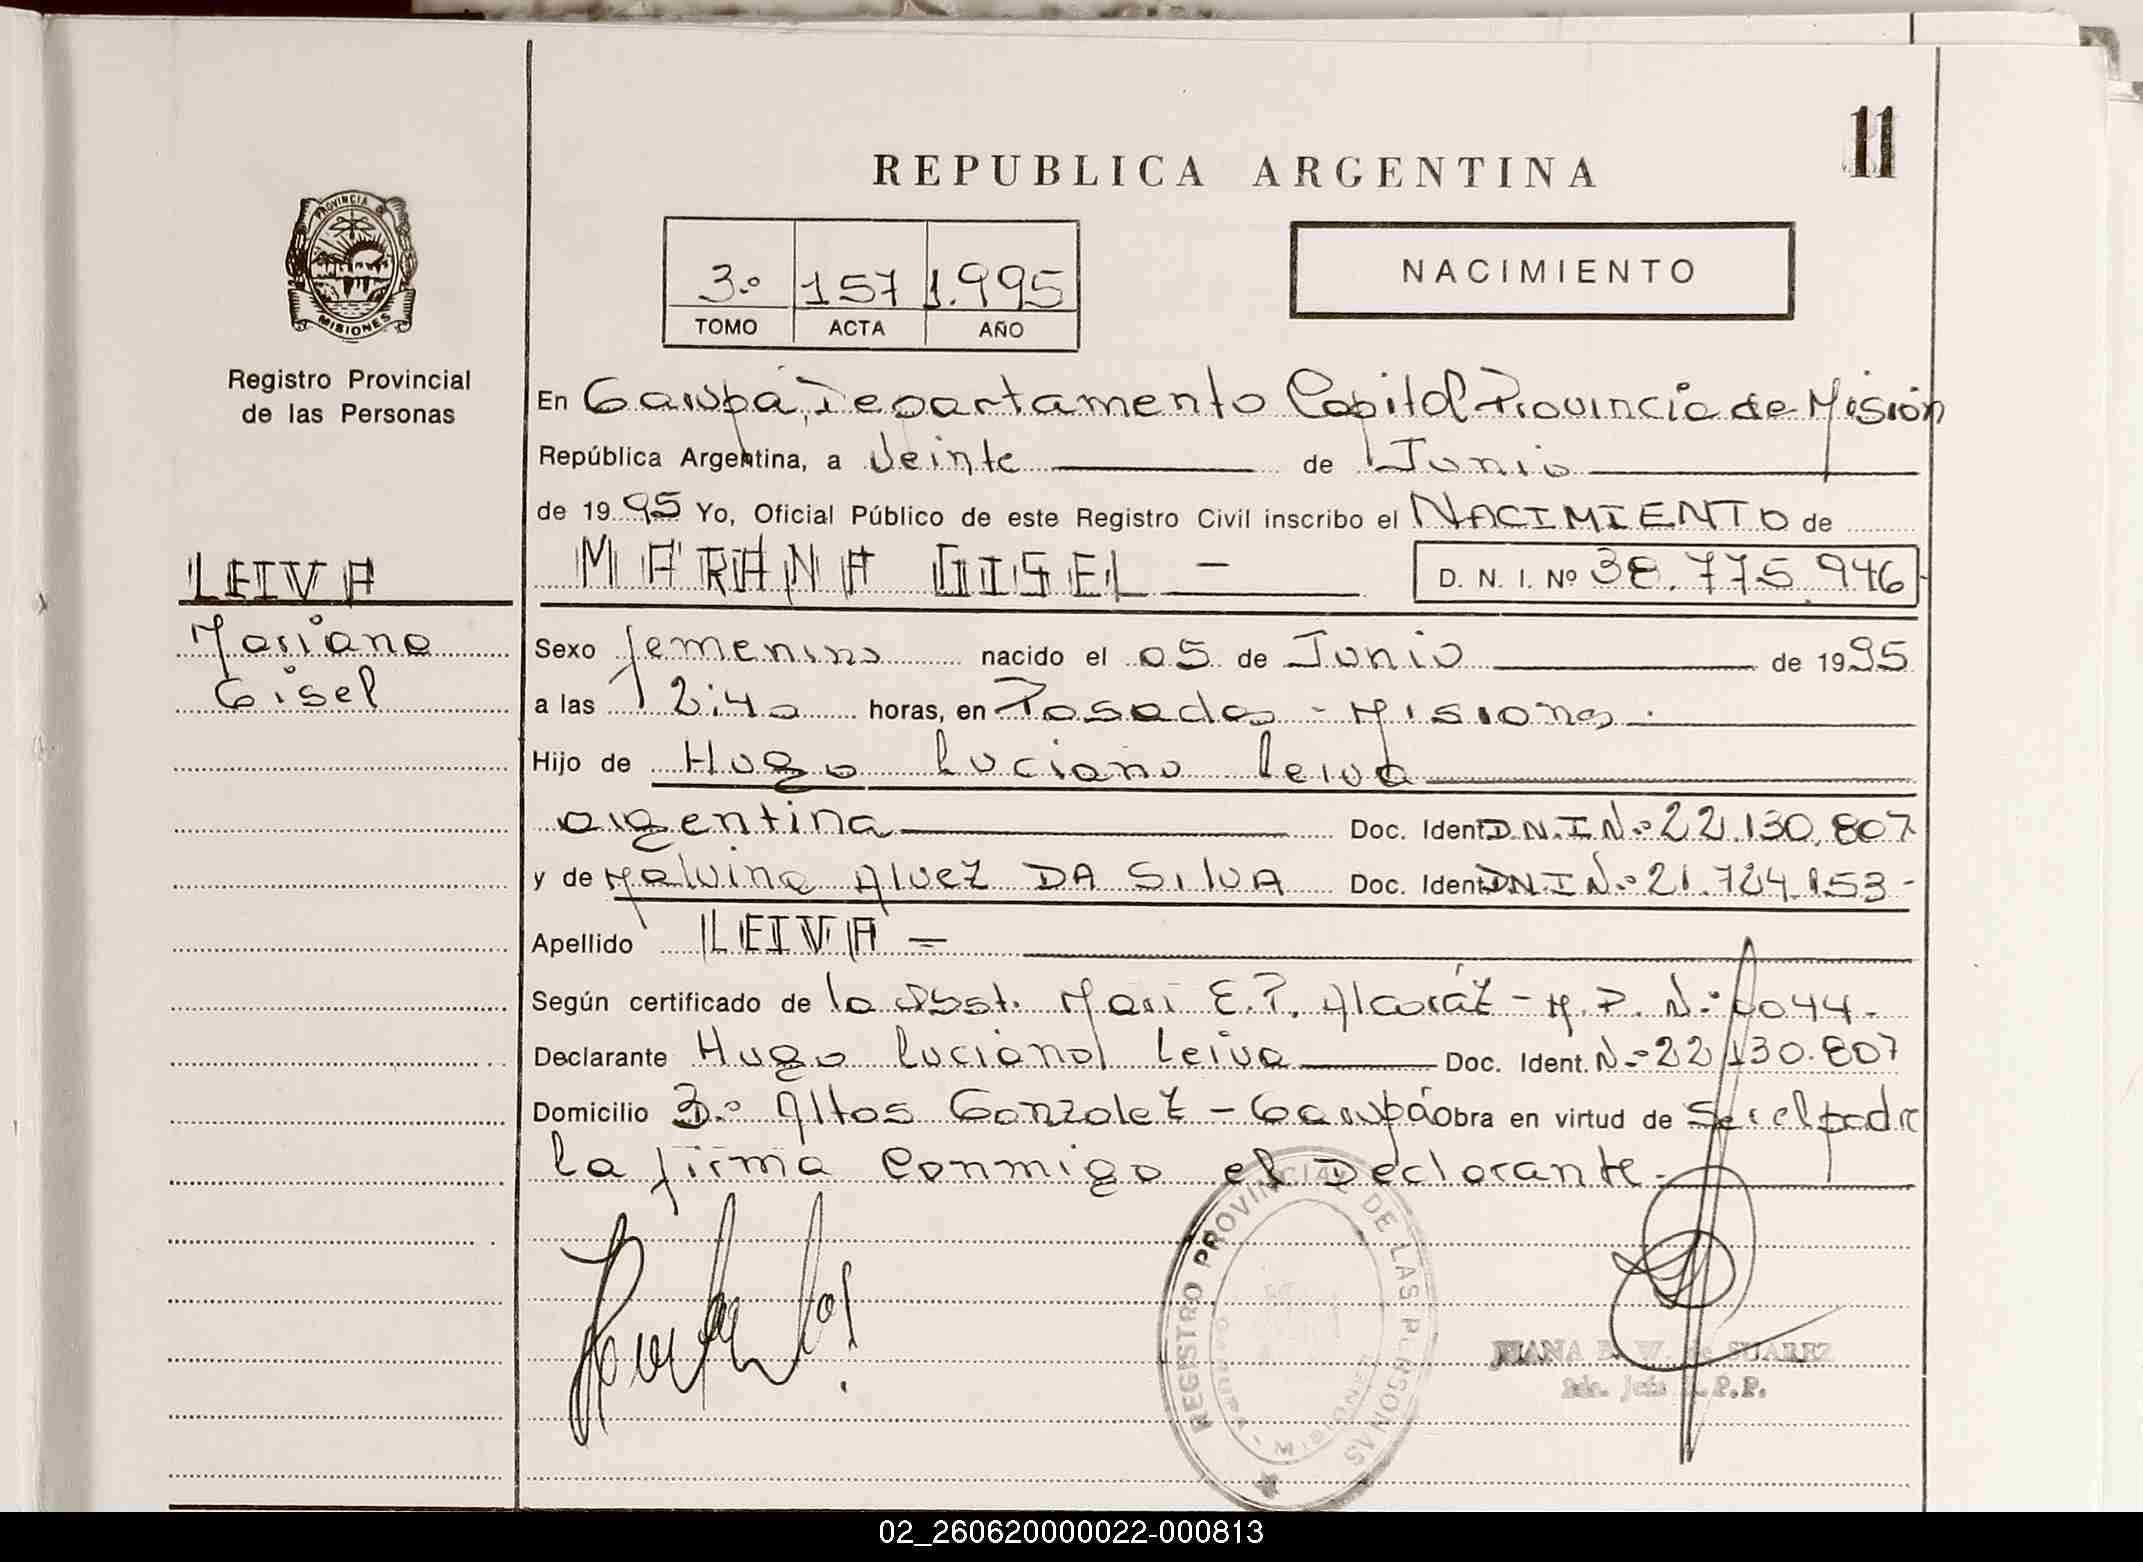 11
REPUBLICA ARGENTINA
PROVINCIA DE
MISIONES
3.º 157 1.995
TOMO ACTA AÑO
NACIMIENTO
Registro Provincial
de las Personas
En Garupá, Departamento Capital Provincia de Mision
República Argentina, a Veinte de Junio
de 1995 Yo, Oficial Público de este Registro Civil inscribo el NACIMIENTO de
MARANA GISEL - D. N. I. Nº 38.775.946
LEIVA
Mariana
Gisel
Sexo femenino nacido el 05 de Junio de 1995
a las 12:40 horas, en Posadas - Misiones.
Hijo de Hugo Luciano Leiva
argentina Doc. Ident. D.N.I Nº 22.130.807
y de Malvina Alvez DA SILVA Doc. Ident. DNI Nº 21.724.153-
Apellido LEIVA =
Según certificado de la Obst. Mari E.P. Alcaráz - M.P. Nº 0044-
Declarante Hugo Luciano Leiva Doc. Ident. Nº 22.130.807
Domicilio 3.º Altos Gonzalez - Garupá Obra en virtud de Ser el padre
la firma Conmigo el Declarante.-
REGISTRO PROVINCIAL DE LAS PERSONAS
MISIONES
JUANA E. W. de SUAREZ
R.P.P.
02_260620000022-000813